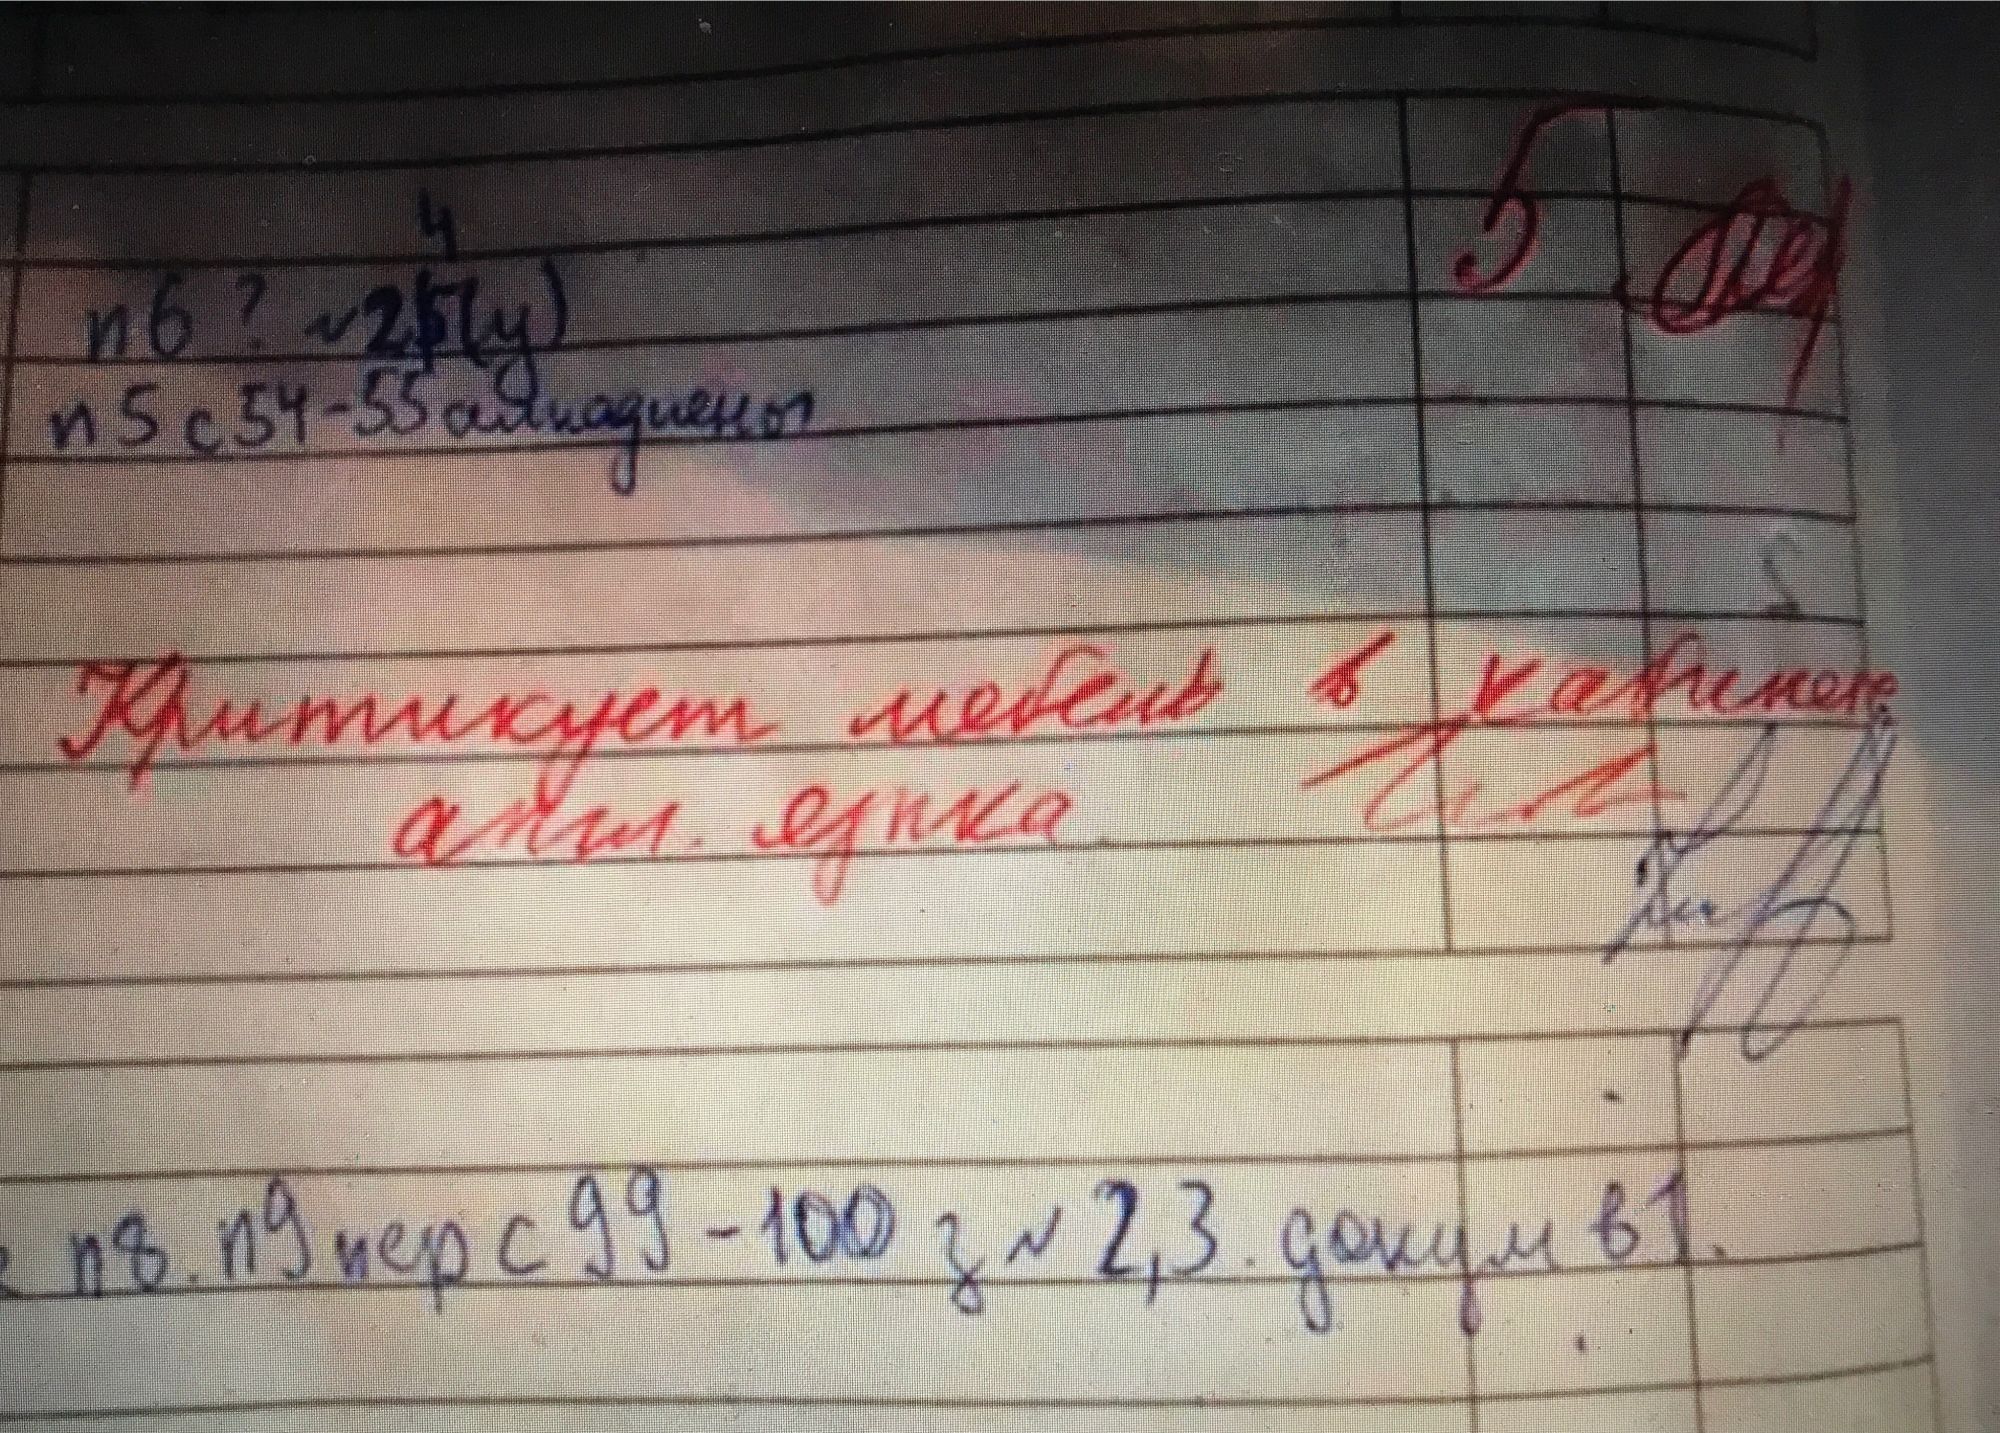 5
п6 ? №24(у)
п5 с 54-55 алкадиенол
Критикует мебель в кабинете
англ. языка
п8. п9 пер с 99-100 з № 2,3. докум в 1.